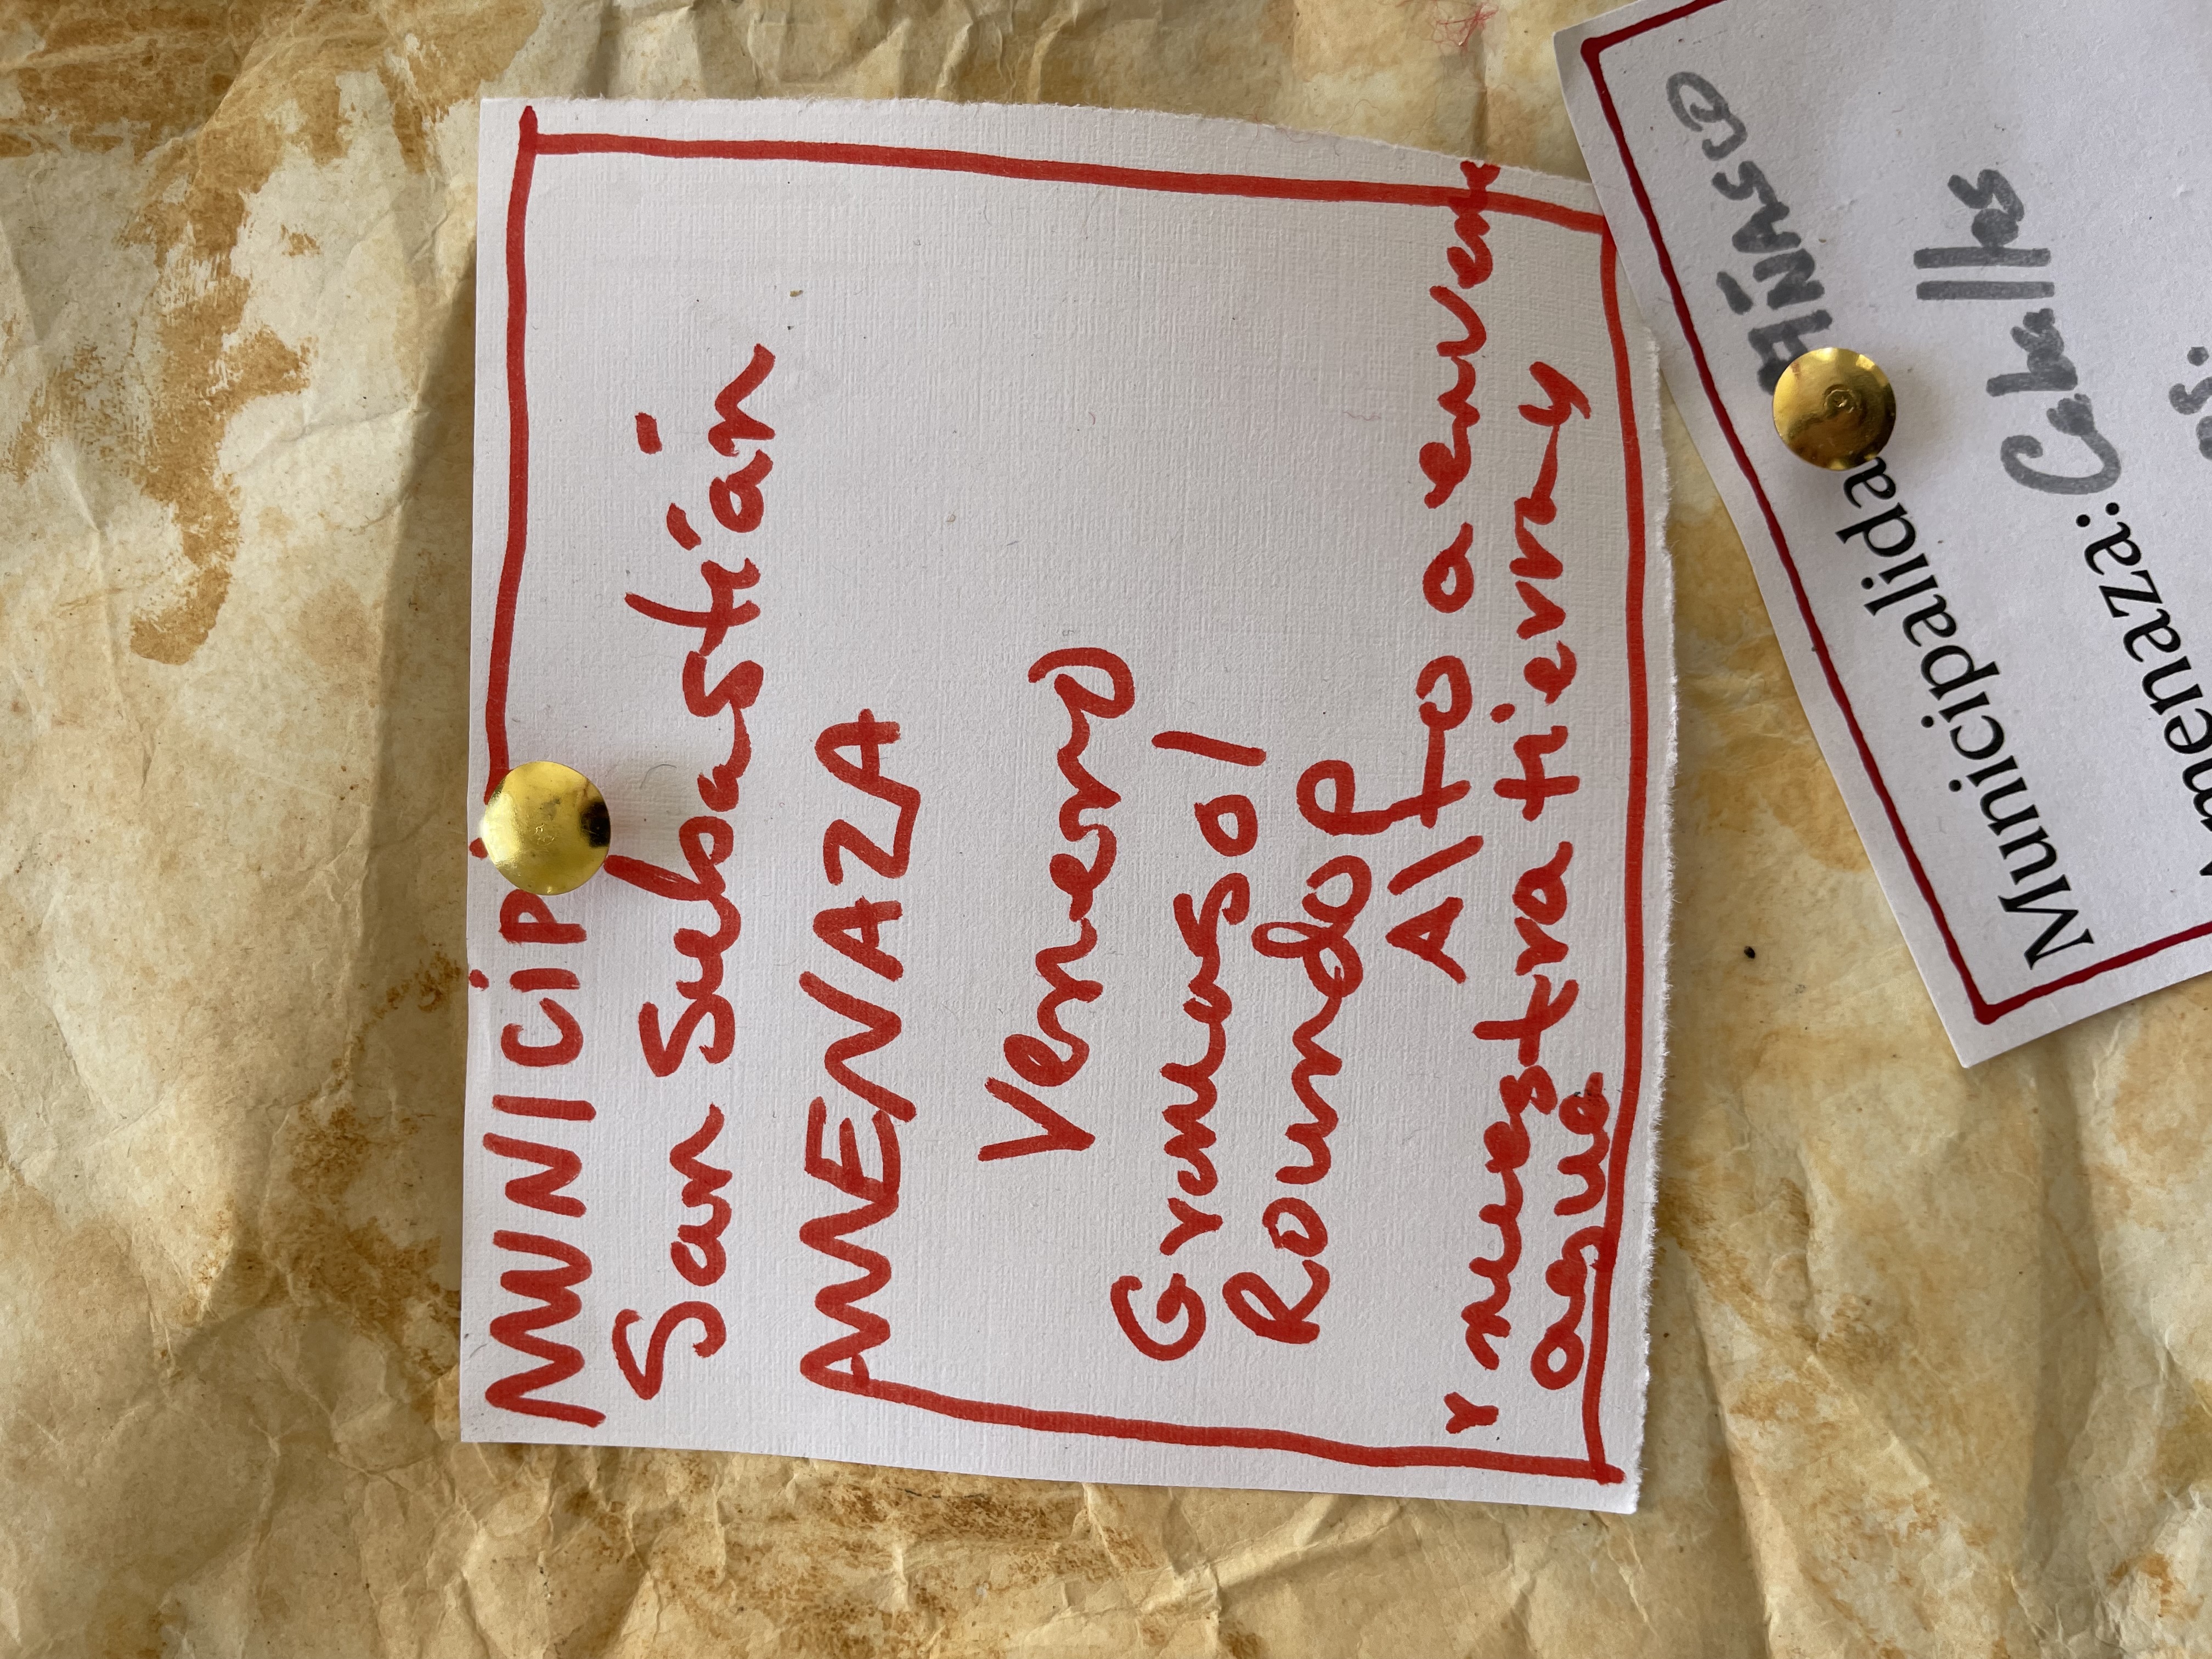 MUNICIP
San Sebastián
AMENAZA
Veneno
Gramasol
Roundop
Alto a enven
r nuestra tierra y
agua
Municipalida
menaza: Caballos